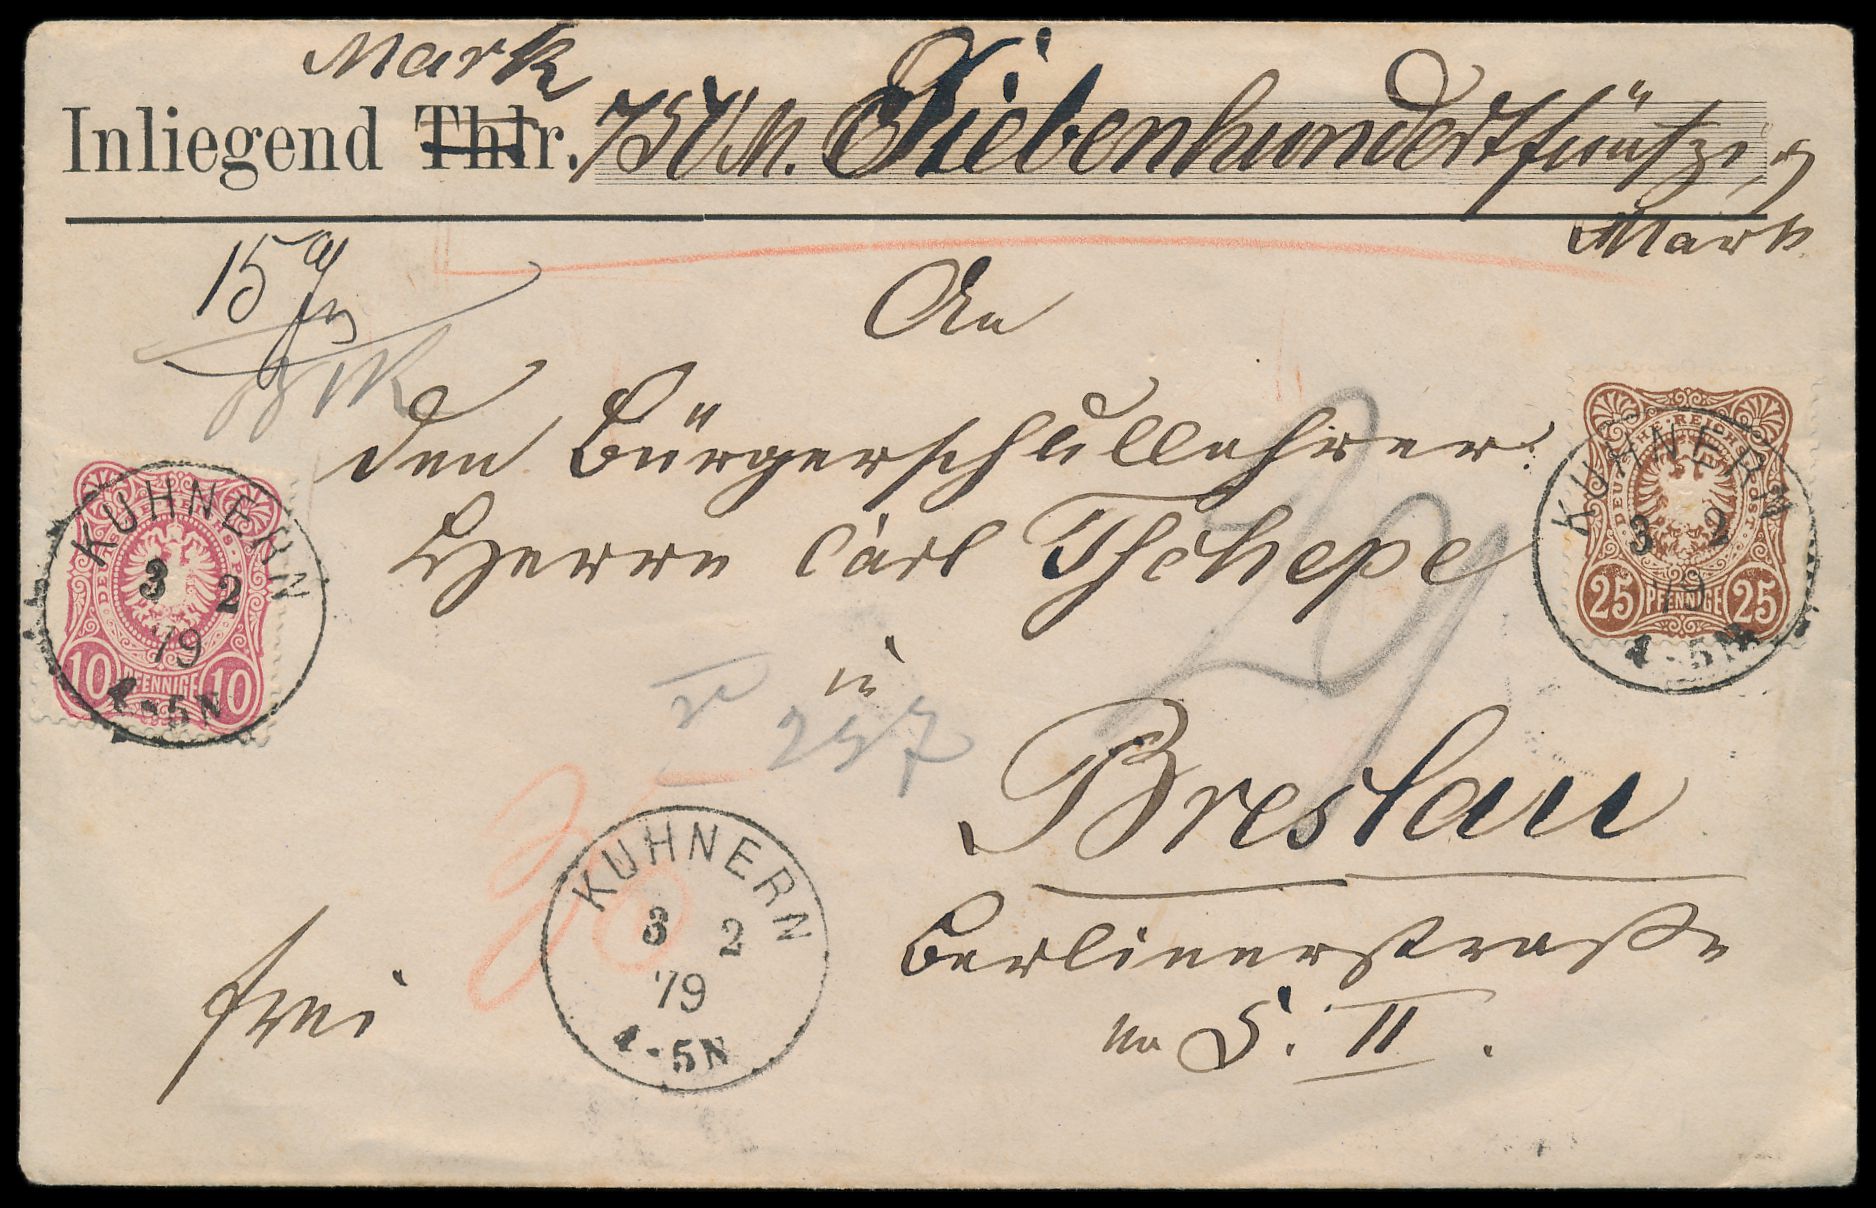 Mark
Inliegend Thlr. 750 M. Siebenhundertfünfzig
Mark
15 g
An
den Bürgerschullehrer
Herrn Carl
in
Breslau
Berlinerstraße
No 5. II.
frei
257
KUHNERN
3 2
79
4-5N
DEUTSCHE REICHS-POST
10 PFENNIGE 10
KUHNERN
3 2
79
4-5N
DEUTSCHE REICHS-POST
25 PFENNIGE 25
KUHNERN
3 2
79
4-5N